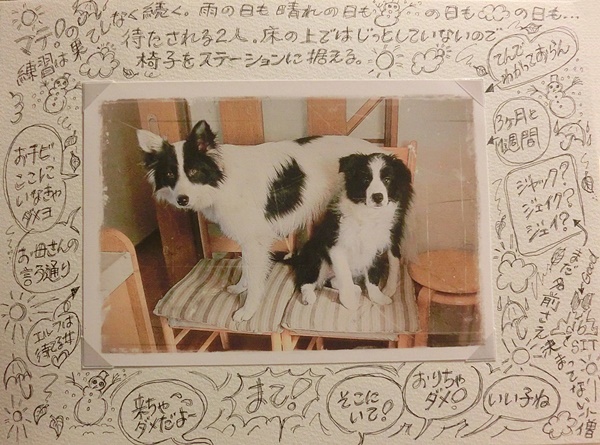 マテ!の
練習は果てしなく続く。雨の日も晴れの日も の日も の日も…
待たされる2人。床の上ではじっとしていないので
椅子をステーションに据える。
てんで
わかっておらん
3ヶ月と
1週間
ジャック?
ジェイク?
ジェイ?
まだ名前さえ
SIT
小僧
おチビ
ここに
いなきゃ
ダメヨ
お母さんの
言う通り
エルフは
待てる女
来ちゃ
ダメだよー
まて!
そこに
いて!
おりちゃ
ダメ!
いい子ね